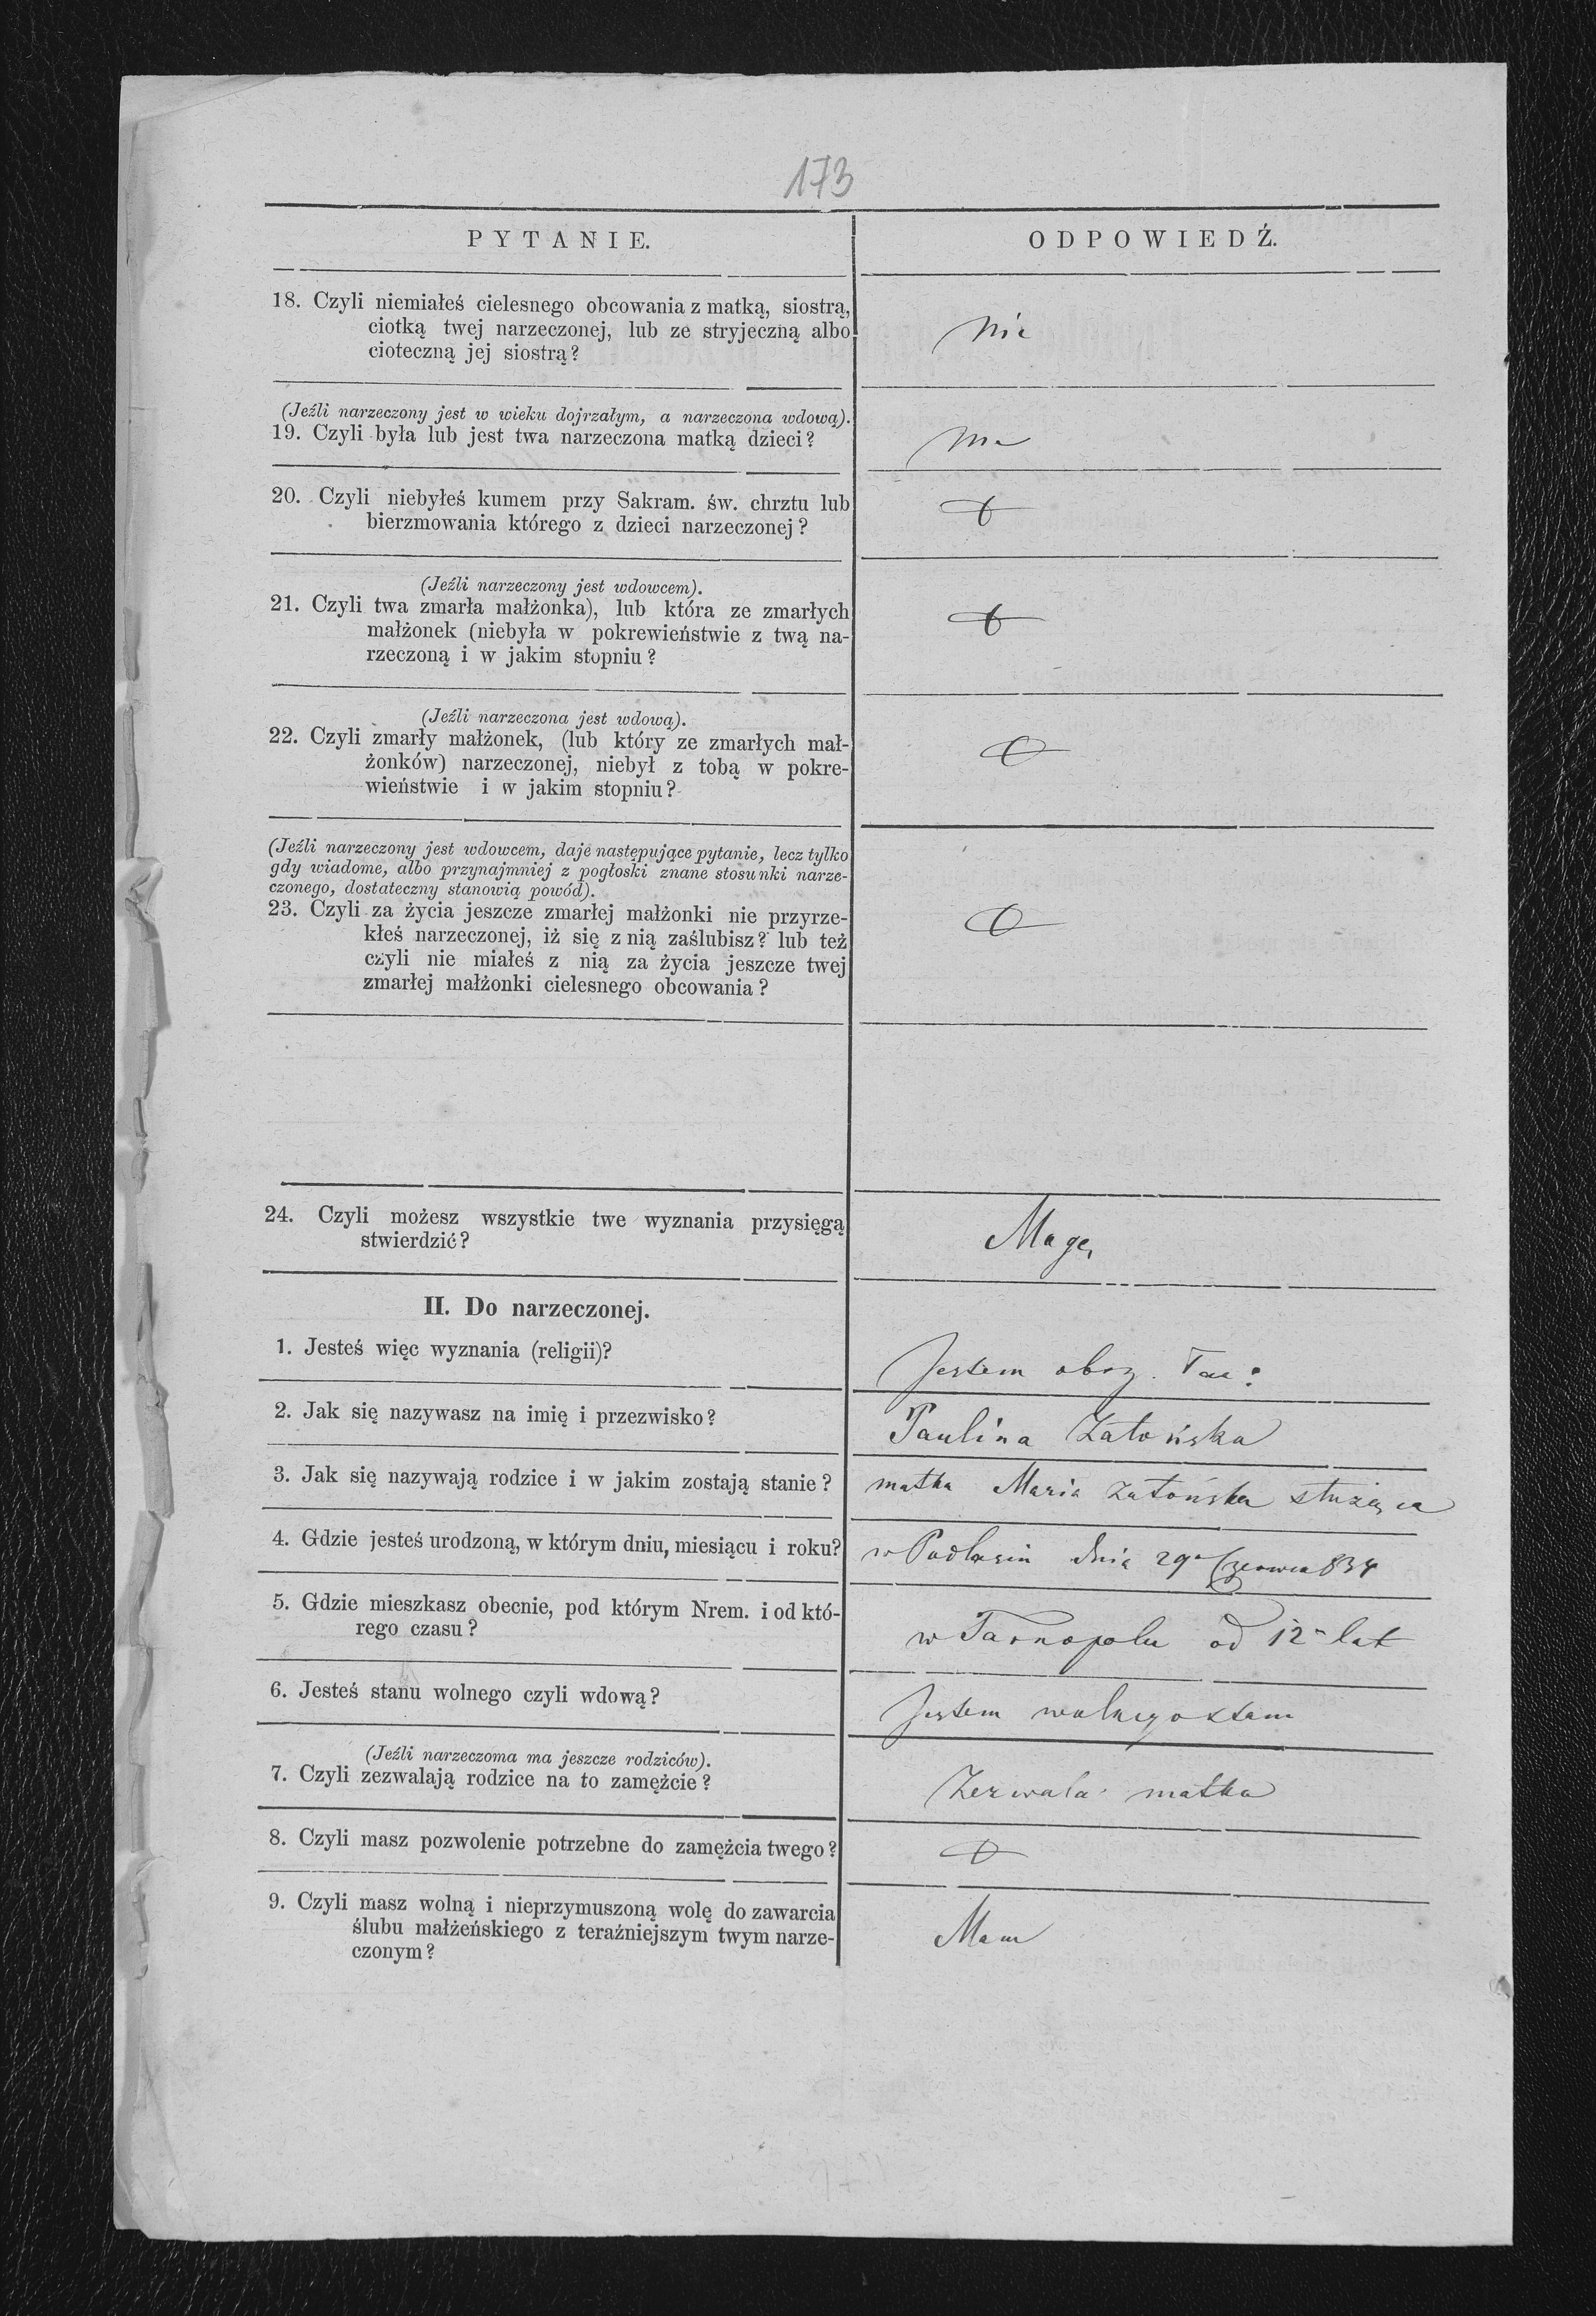 173
PYTANIE.
ODPOWIEDŹ.
18. Czyli niemiałeś cielesnego obcowania z matką, siostrą,
ciotką twej narzeczonej, lub ze stryjeczną albo
cioteczną jej siostrą?
Nie
(Jeźli narzeczony jest w wieku dojrzałym, a narzeczona wdową).
19. Czyli była lub jest twa narzeczona matką dzieci?
20. Czyli niebyłeś kumem przy Sakram. św. chrztu lub
bierzmowania którego z dzieci narzeczonej?
(Jeźli narzeczony jest wdowcem).
21. Czyli twa zmarła małżonka), lub która ze zmarłych
małżonek (niebyła w pokrewieństwie z twą na-
rzeczoną i w jakim stopniu?
(Jeźli narzeczona jest wdową).
22. Czyli zmarły małżonek, (lub który ze zmarłych mał-
żonków) narzeczonej, niebył z tobą w pokre-
wieństwie i w jakim stopniu?
(Jeźli narzeczony jest wdowcem, daje następujące pytanie, lecz tylko
gdy wiadome, albo przynajmniej z pogłoski znane stosunki narze-
czonego, dostateczny stanowią powód).
23. Czyli za życia jeszcze zmarłej małżonki nie przyrze-
kłeś narzeczonej, iż się z nią zaślubisz? lub też
czyli nie miałeś z nią za życia jeszcze twej
zmarłej małżonki cielesnego obcowania?
24. Czyli możesz wszystkie twe wyznania przysięgą
stwierdzić?
Mogę
II. Do narzeczonej.
1. Jesteś więc wyznania (religii)?
Jestem obrz. łac:
2. Jak się nazywasz na imię i przezwisko?
Paulina Zatońska
3. Jak się nazywają rodzice i w jakim zostają stanie?
matka Maria Zatońska służąca
4. Gdzie jesteś urodzoną, w którym dniu, miesiącu i roku?
w Podlasiu dnia 29º Czerwca 834
5. Gdzie mieszkasz obecnie, pod którym Nrem. i od któ-
rego czasu?
w Tarnopolu od 12 lat
6. Jesteś stanu wolnego czyli wdową?
Jestem wolnego stanu
(Jeźli narzeczoma ma jeszcze rodziców).
7. Czyli zezwalają rodzice na to zamężcie?
Zezwala matka
8. Czyli masz pozwolenie potrzebne do zamężcia twego?
9. Czyli masz wolną i nieprzymuszoną wolę do zawarcia
ślubu małżeńskiego z teraźniejszym twym narze-
czonym?
Mam